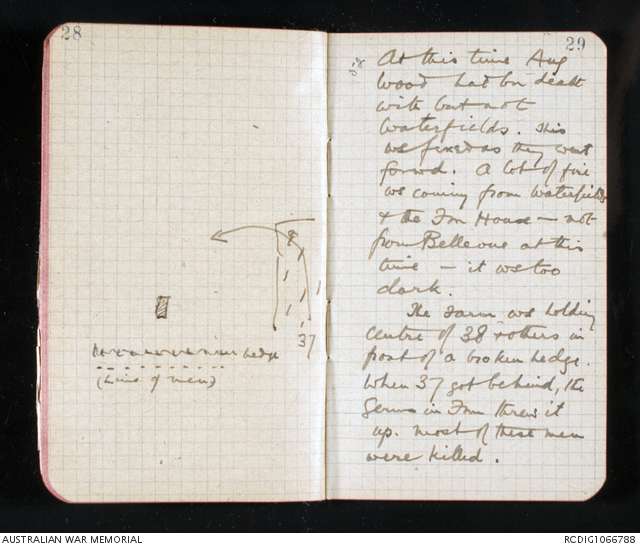 28
37
hedge
(Line of men)
29
At this time Aug
Wood had bn dealt
with but not
Waterfields. This
ws fixed as they went
forwd. A lot of fire
ws coming from Waterfields
& the Fm House – not
from Bellevue at this
time – it ws too
dark.
The Farm ws holding
centre of 38 & others in
front of a broken hedge.
When 37 got behind, the
Germs in Fm threw it
up. most of these men
were killed.
AUSTRALIAN WAR MEMORIAL
RCDIG1066788